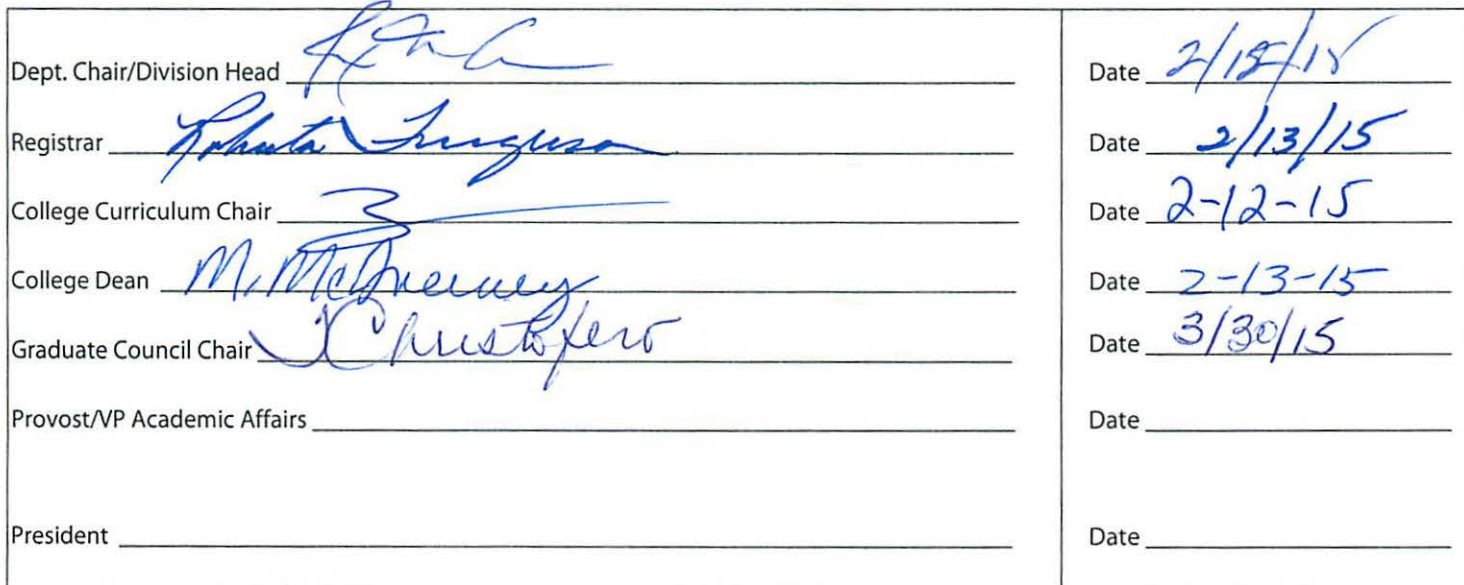 Dept. Chair/Division Head Date
Registrar Roberta Ferguson Date 2/13/15
College Curriculum Chair Date 2-12-15
College Dean M. Date 2-13-15
Graduate Council Chair Christofero Date 3/30/15
Provost/VP Academic Affairs Date
President Date